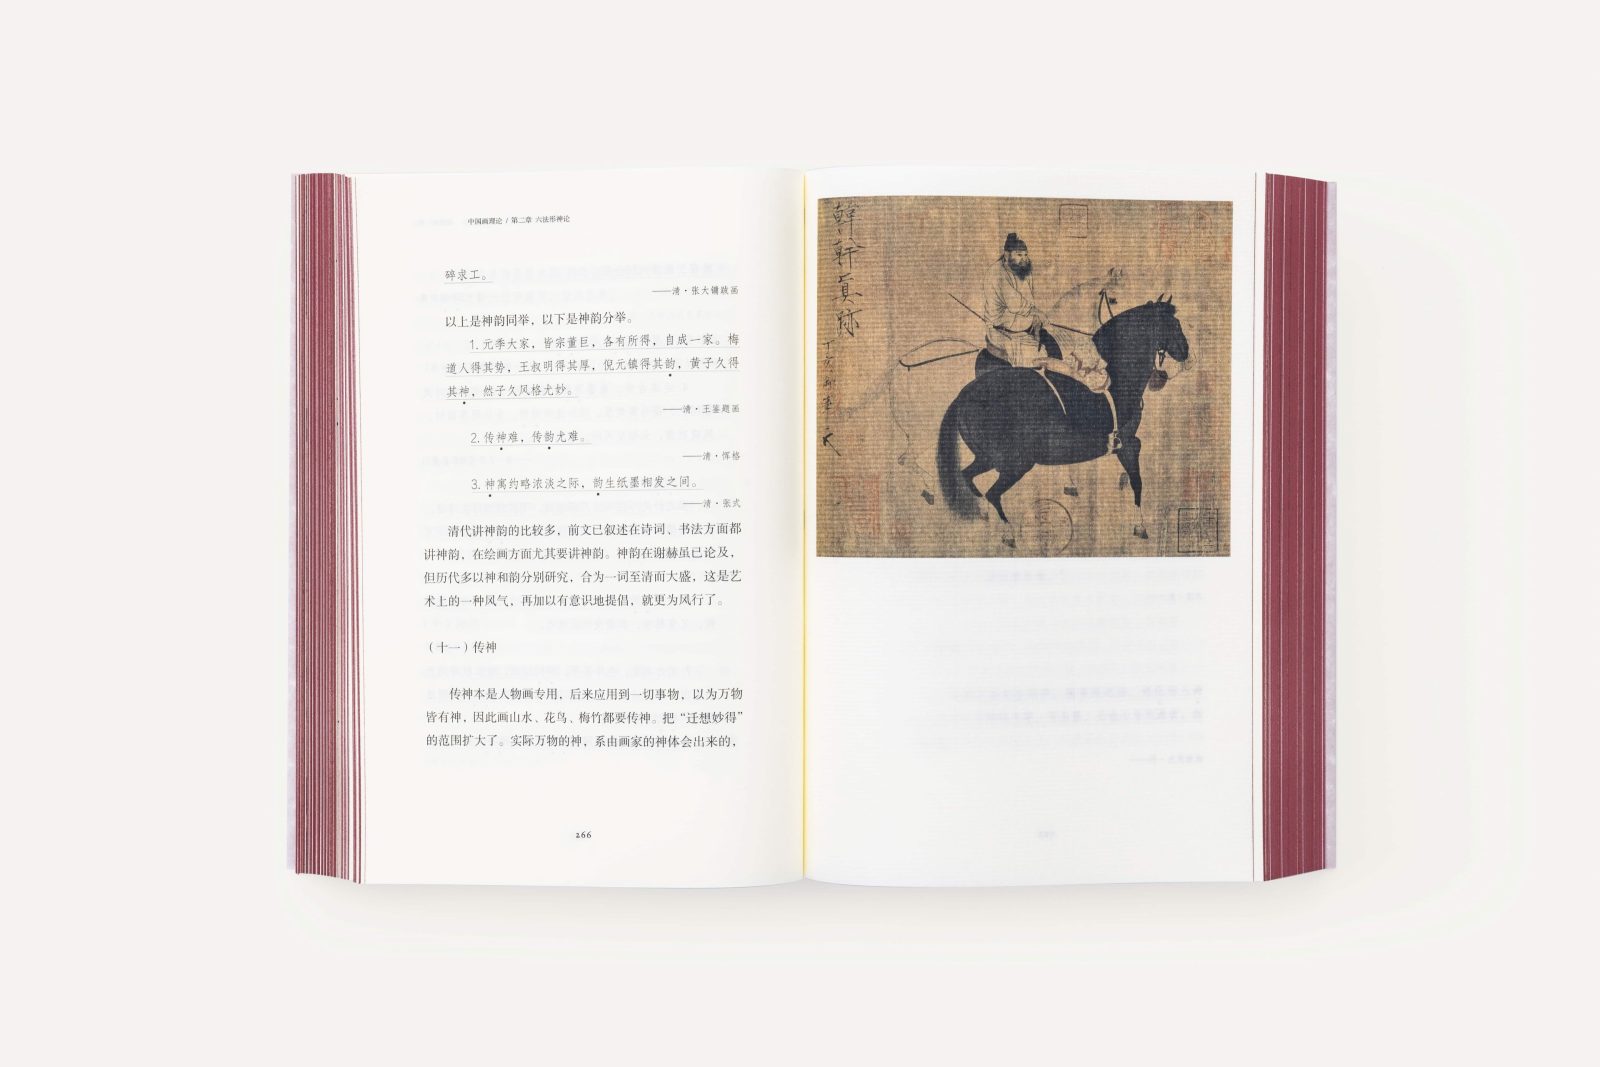 中国画理论 / 第二章 六法形神论
碎求工。
——清·张大镛跋画
以上是神韵同举，以下是神韵分举。
1. 元季大家，皆宗董巨，各有所得，自成一家。梅
道人得其势，王叔明得其厚，倪元镇得其韵，黄子久得
其神，然子久风格尤妙。
——清·王鉴题画
2. 传神难，传韵尤难。
——清·恽格
3. 神寓约略浓淡之际，韵生纸墨相发之间。
——清·张式
清代讲神韵的比较多，前文已叙述在诗词、书法方面都
讲神韵，在绘画方面尤其要讲神韵。神韵在谢赫虽已论及，
但历代多以神和韵分别研究，合为一词至清而大盛，这是艺
术上的一种风气，再加以有意识地提倡，就更为风行了。
（十一）传神
传神本是人物画专用，后来应用到一切事物，以为万物
皆有神，因此画山水、花鸟、梅竹都要传神。把“迁想妙得”
的范围扩大了。实际万物的神，系由画家的神体会出来的，
266
韓幹真跡
丁亥